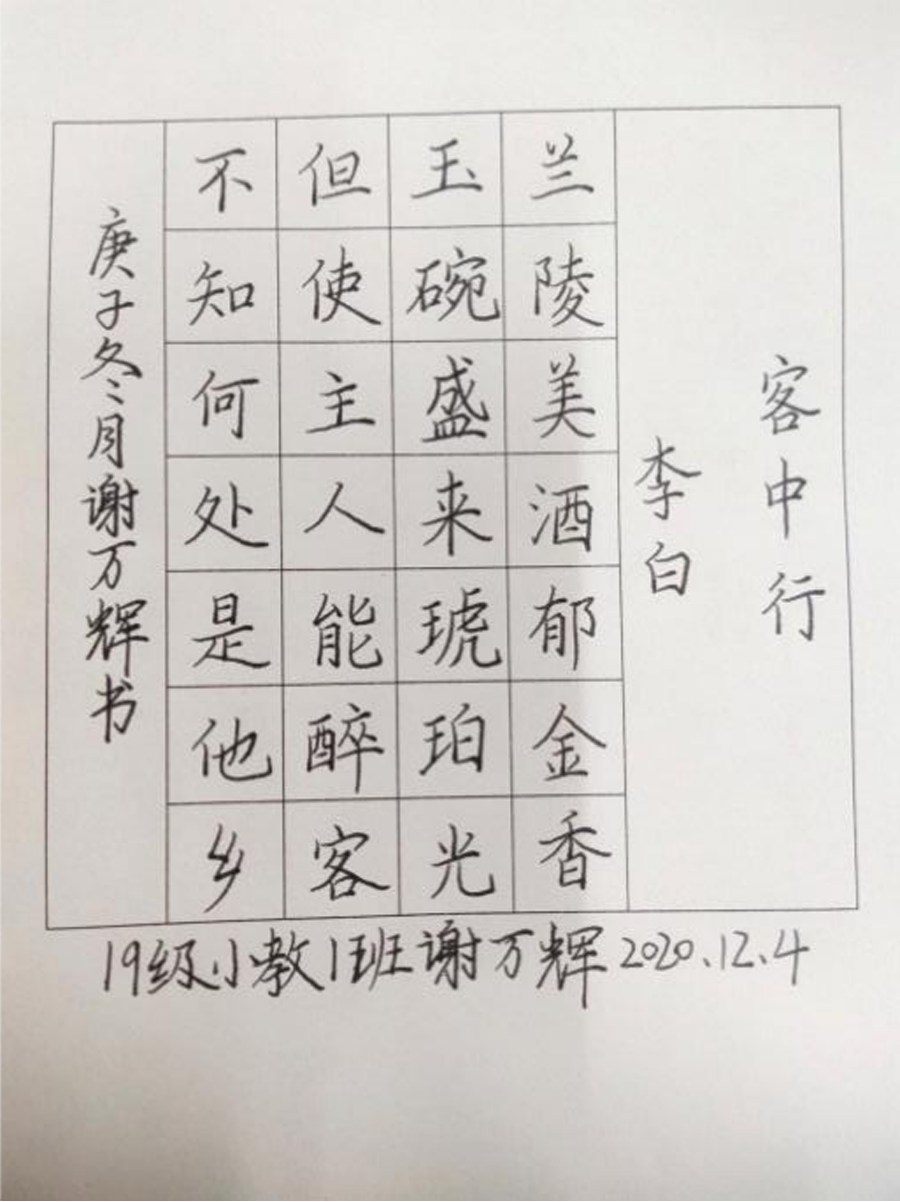 客中行
李白
兰陵美酒郁金香
玉碗盛来琥珀光
但使主人能醉客
不知何处是他乡
庚子冬月谢万辉书
19级小教1班谢万辉2020.12.4